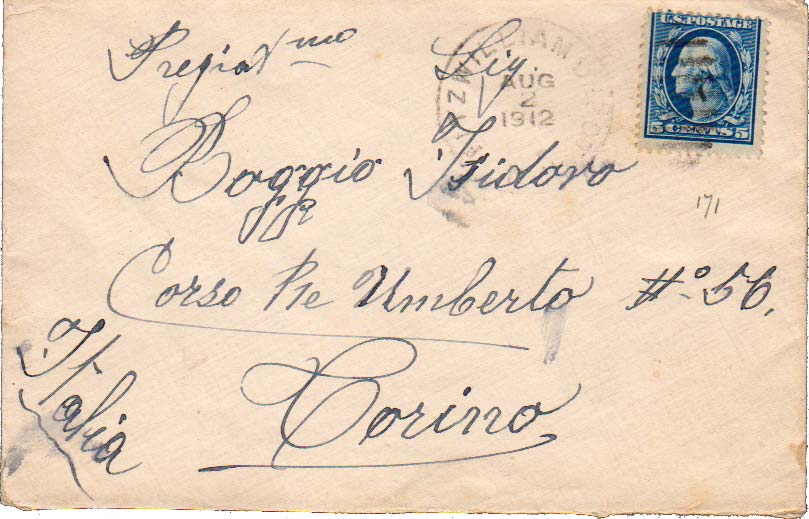 U.S. POSTAGE
5 CENTS 5
WILLIAM
AUG
2
1912
Pregiat^mo Sig.
Boggio Isidoro
171
Corso Re Umberto #° 56.
Torino
Italia